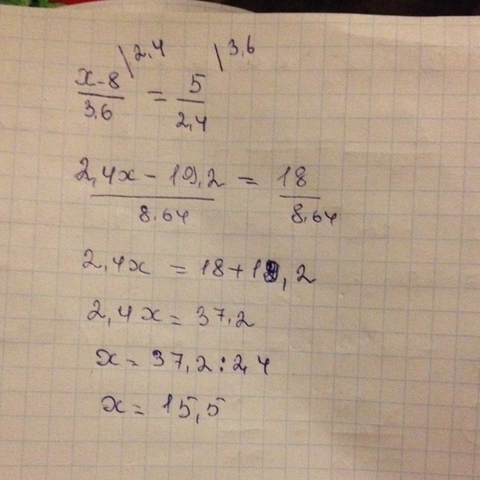 \2,4 \3,6
x-8/3,6 = 5/2,4
2,4x - 19,2/8,64 = 18/8,64
2,4x = 18+19,2
2,4x = 37,2
x = 37,2:2,4
x = 15,5